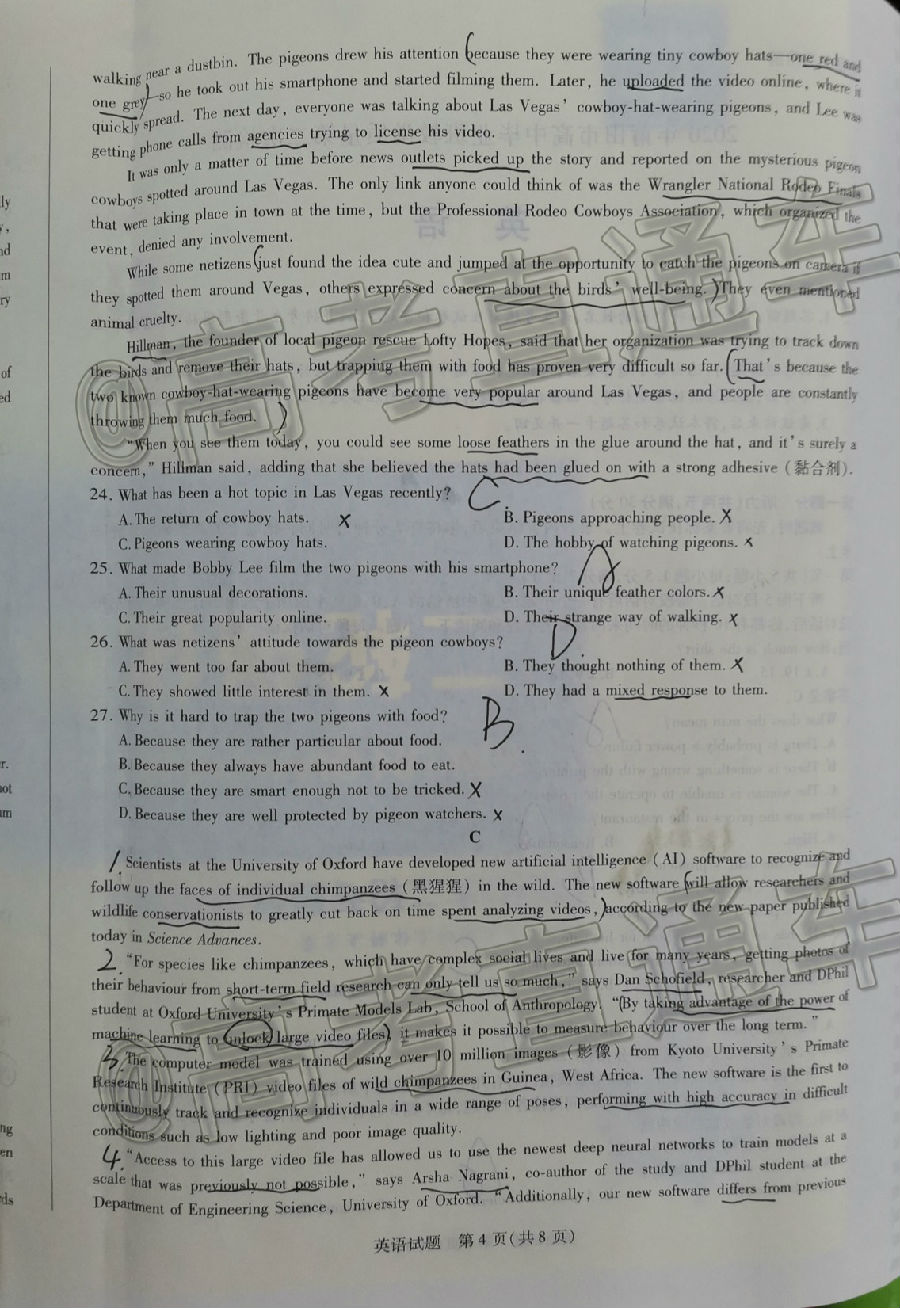 walking near a dustbin. The pigeons drew his attention because they were wearing tiny cowboy hats—one red and
one grey—so he took out his smartphone and started filming them. Later, he uploaded the video online, where it
quickly spread. The next day, everyone was talking about Las Vegas' cowboy-hat-wearing pigeons, and Lee was
getting phone calls from agencies trying to license his video.
It was only a matter of time before news outlets picked up the story and reported on the mysterious pigeon
cowboys spotted around Las Vegas. The only link anyone could think of was the Wrangler National Rodeo Finals
that were taking place in town at the time, but the Professional Rodeo Cowboys Association, which organized the
event, denied any involvement.
While some netizens just found the idea cute and jumped at the opportunity to catch the pigeons on camera if
they spotted them around Vegas, others expressed concern about the birds' well-being. They even mentioned
animal cruelty.
Hillman, the founder of local pigeon rescue Lofty Hopes, said that her organization was trying to track down
the birds and remove their hats, but trapping them with food has proven very difficult so far. That's because the
two known cowboy-hat-wearing pigeons have become very popular around Las Vegas, and people are constantly
throwing them much food.
"When you see them today, you could see some loose feathers in the glue around the hat, and it's surely a
concern," Hillman said, adding that she believed the hats had been glued on with a strong adhesive (黏合剂).
24. What has been a hot topic in Las Vegas recently? C
A. The return of cowboy hats. X B. Pigeons approaching people. X
C. Pigeons wearing cowboy hats. D. The hobby of watching pigeons. X
25. What made Bobby Lee film the two pigeons with his smartphone? A
A. Their unusual decorations. B. Their unique feather colors. X
C. Their great popularity online. D. Their strange way of walking. X
26. What was netizens' attitude towards the pigeon cowboys? D
A. They went too far about them. B. They thought nothing of them. X
C. They showed little interest in them. X D. They had a mixed response to them.
27. Why is it hard to trap the two pigeons with food? B
A. Because they are rather particular about food.
B. Because they always have abundant food to eat.
C. Because they are smart enough not to be tricked. X
D. Because they are well protected by pigeon watchers. X
C
1. Scientists at the University of Oxford have developed new artificial intelligence (AI) software to recognize and
follow up the faces of individual chimpanzees (黑猩猩) in the wild. The new software will allow researchers and
wildlife conservationists to greatly cut back on time spent analyzing videos, according to the new paper published
today in Science Advances.
2. "For species like chimpanzees, which have complex social lives and live for many years, getting photos of
their behaviour from short-term field research can only tell us so much," says Dan Schofield, researcher and DPhil
student at Oxford University's Primate Models Lab, School of Anthropology. "By taking advantage of the power of
machine learning to unlock large video files, it makes it possible to measure behaviour over the long term."
3. The computer model was trained using over 10 million images (影像) from Kyoto University's Primate
Research Institute (PRI) video files of wild chimpanzees in Guinea, West Africa. The new software is the first to
continuously track and recognize individuals in a wide range of poses, performing with high accuracy in difficult
conditions such as low lighting and poor image quality.
4. "Access to this large video file has allowed us to use the newest deep neural networks to train models at a
scale that was previously not possible," says Arsha Nagrani, co-author of the study and DPhil student at the
Department of Engineering Science, University of Oxford. "Additionally, our new software differs from previous
英语试题 第4页(共8页)
@高考直通车
@高考直通车